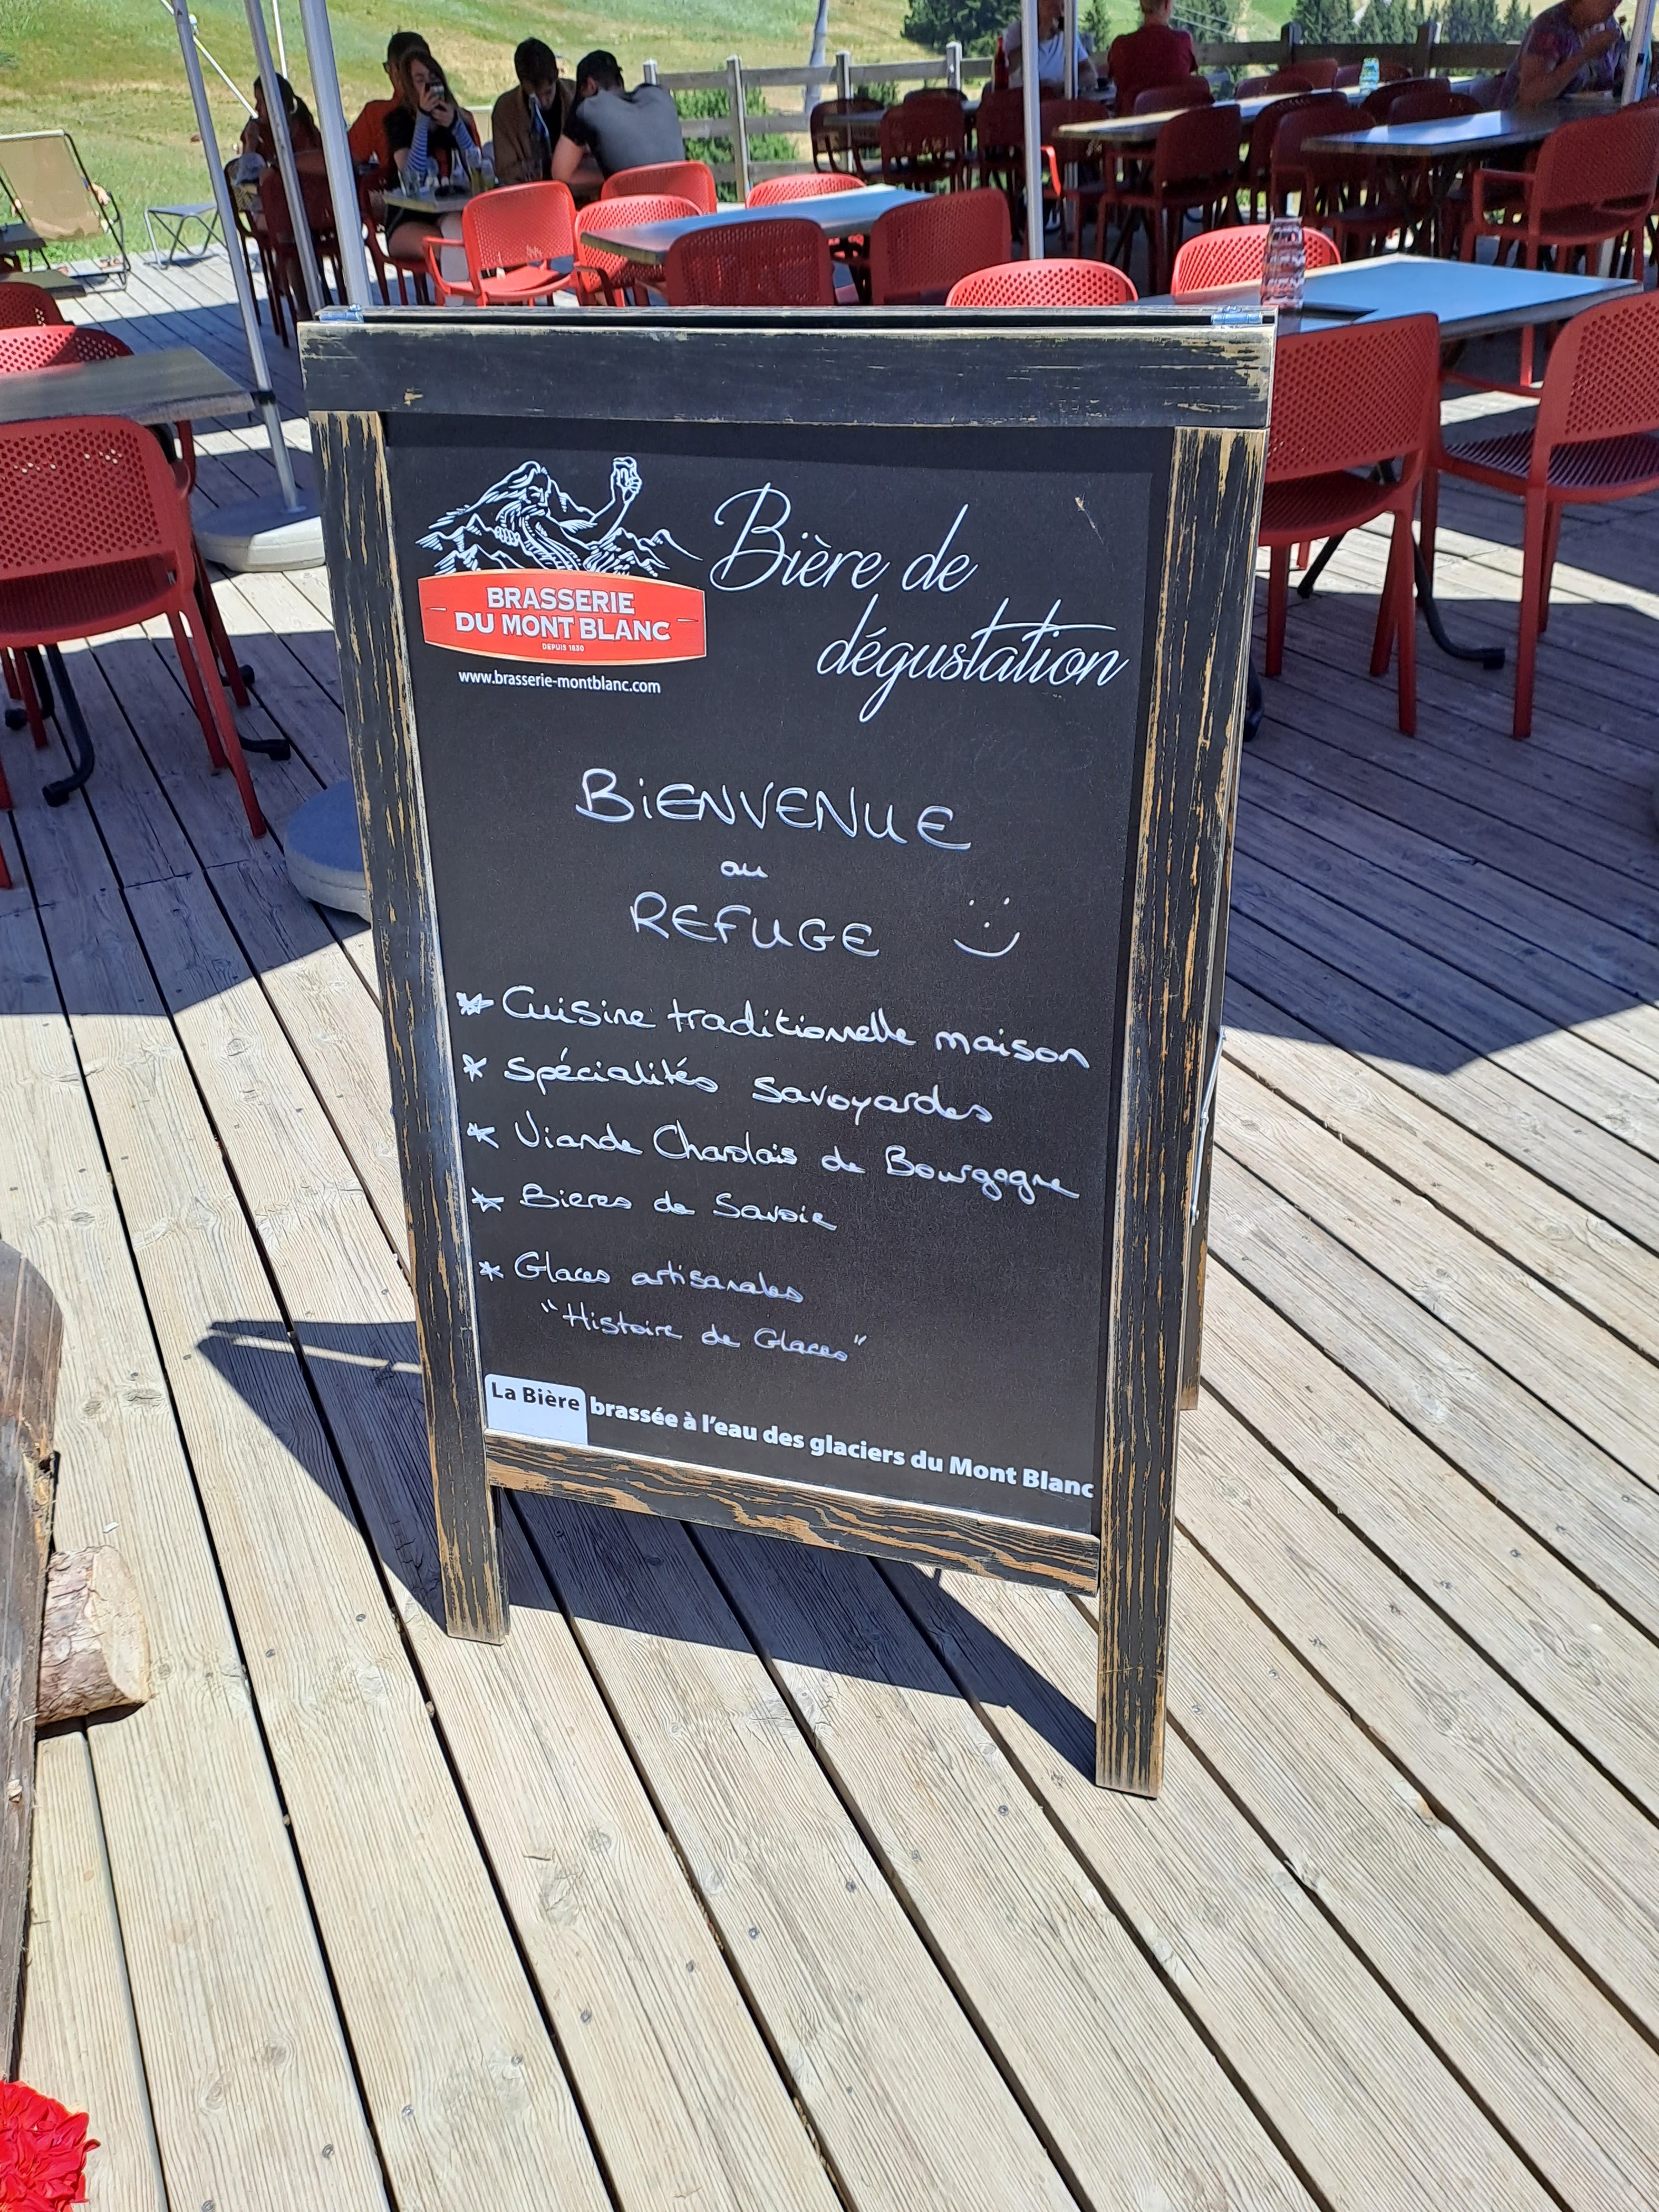 BRASSERIE
DU MONT BLANC
DEPUIS 1830
www.brasserie-montblanc.com
Bière de
dégustation
BiENVENUE
au
REFUGE
* Cuisine traditionnelle maison
* Spécialités Savoyardes
* Viande Charolais de Bourgogne
* Bieres de Savoie
* Glaces artisanales
"Histoire de Glaces"
La Bière brassée à l'eau des glaciers du Mont Blanc